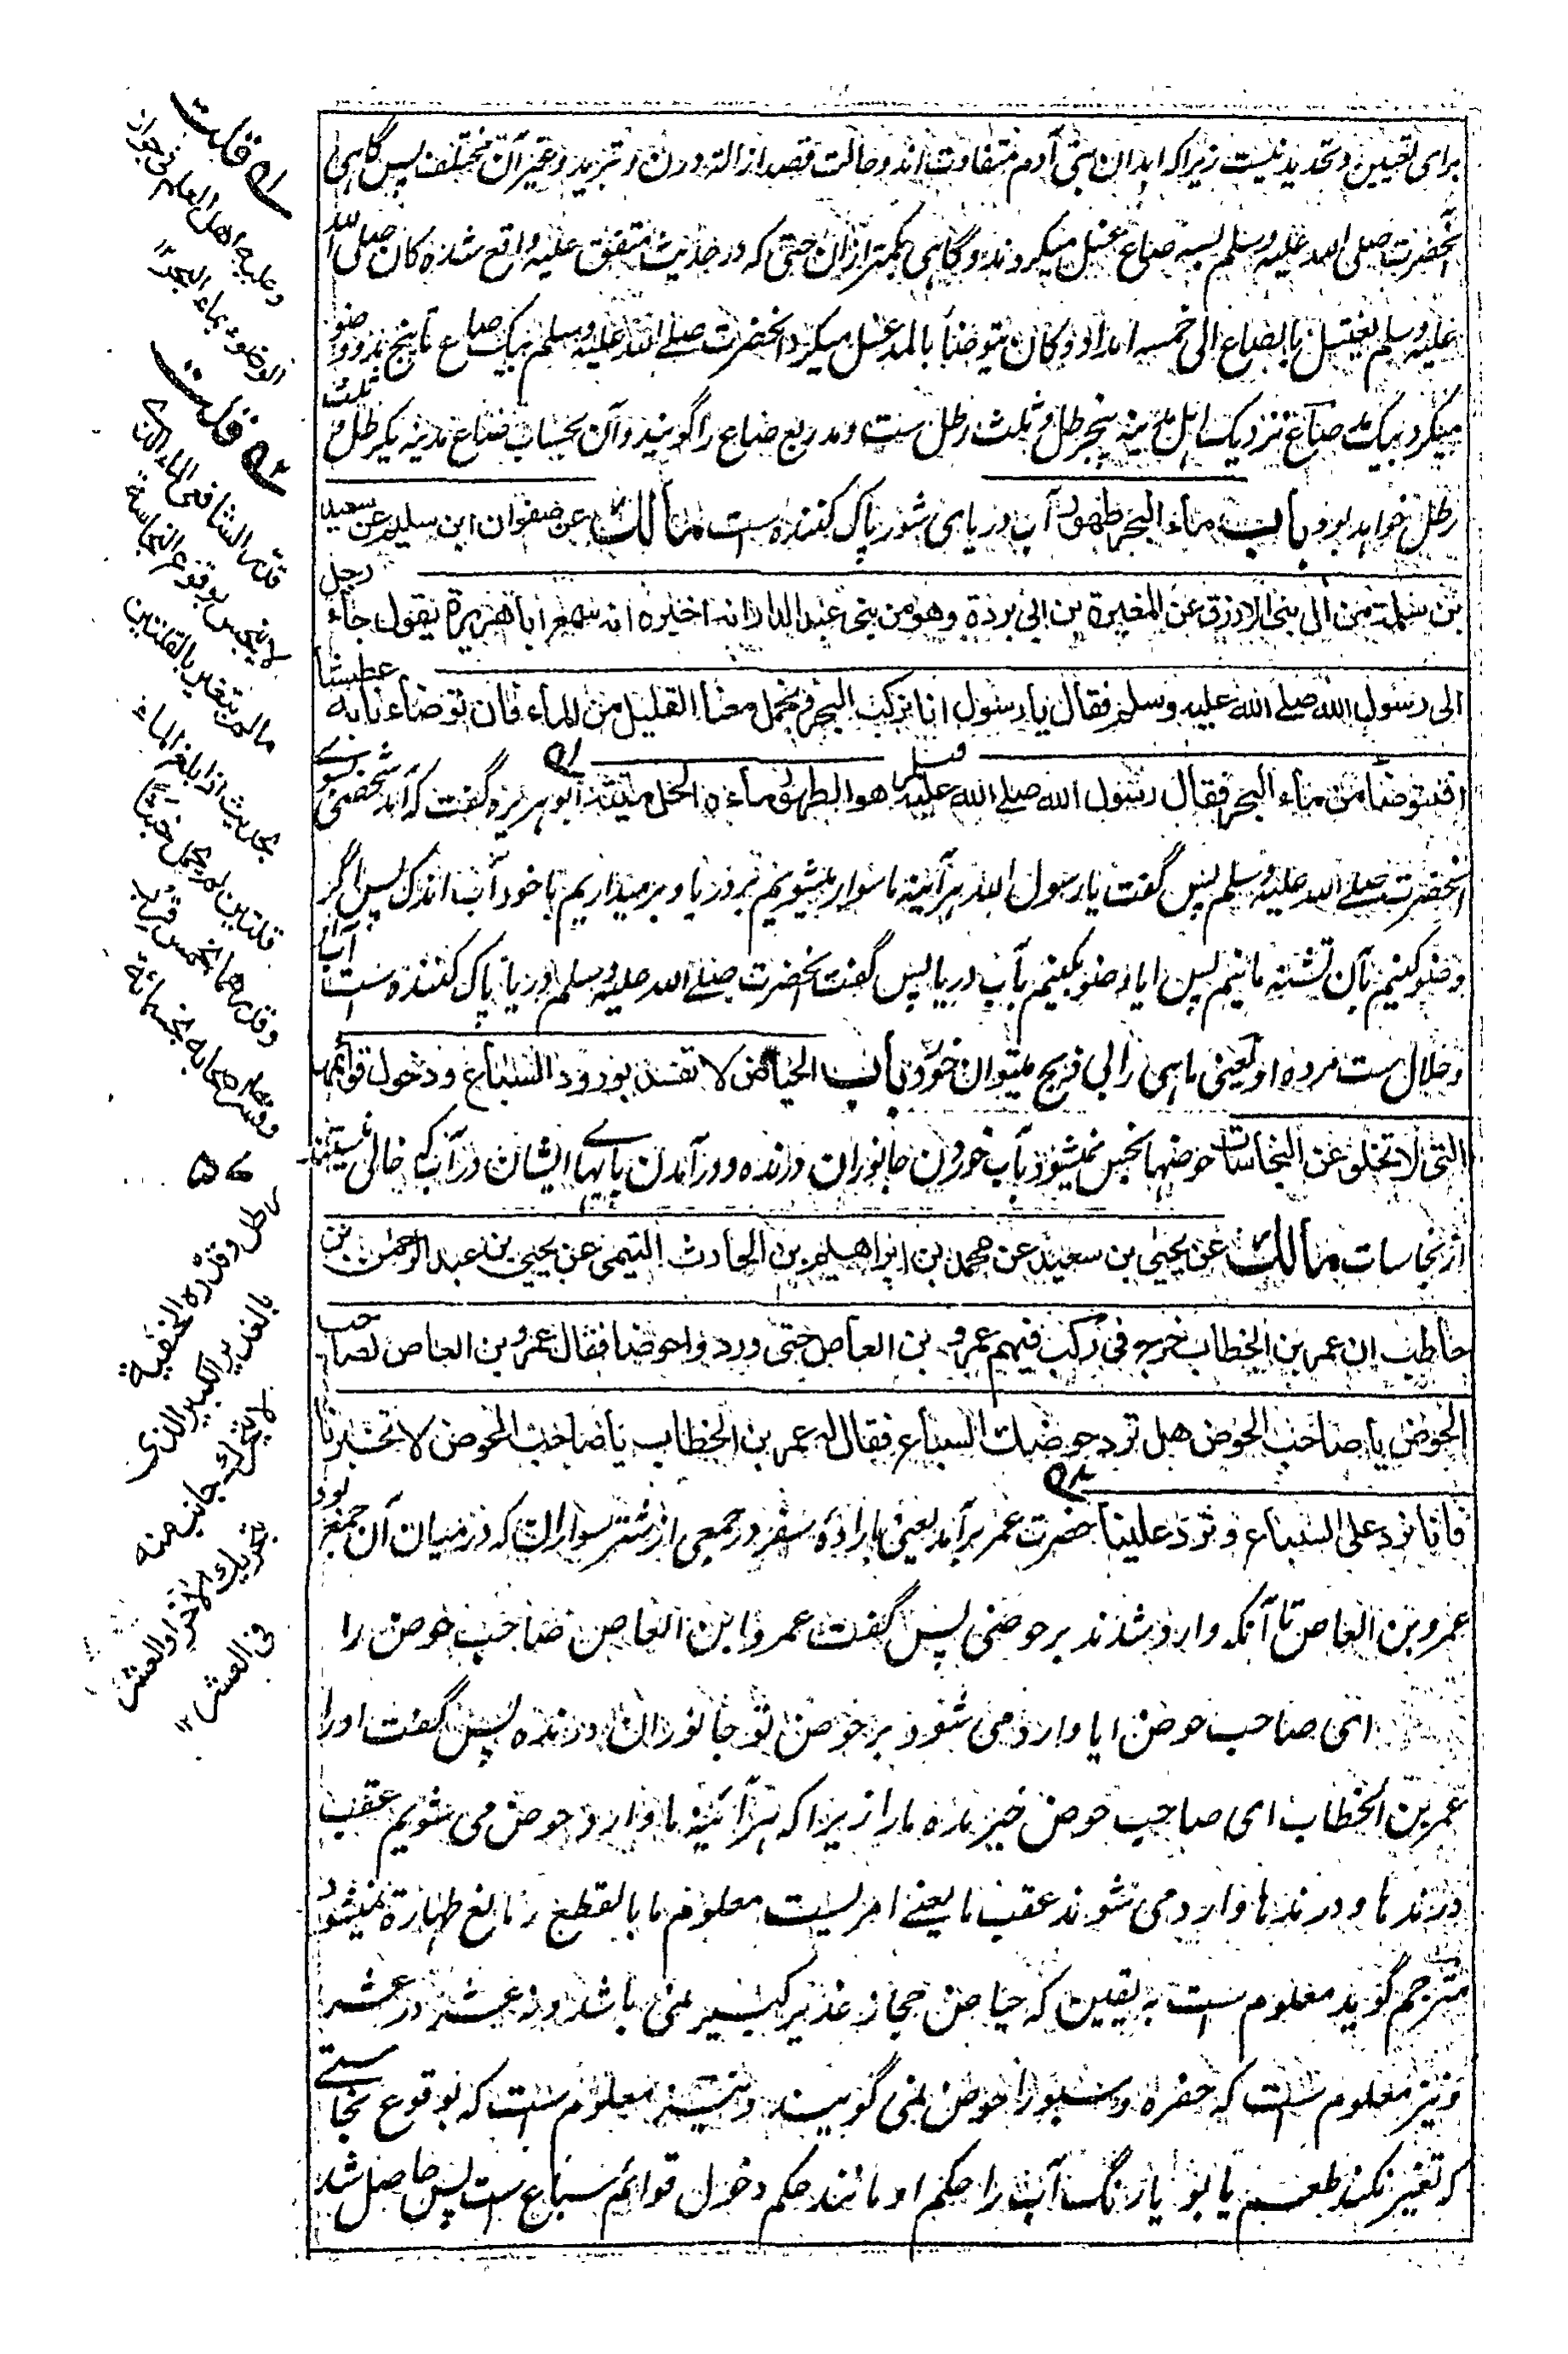 برای تعیین و تحدید نیست زیرا که ابدان بنی آدم متفاوت اند و حالت قصد ازاله درن و تبرید و غیر آن مختلف پس گاهی
آنحضرت صلی الله علیه وسلم بسه صاع غسل میکردند و گاهی بکمتر ازان حتی که در حدیث متفق علیه واقع شده کان صلی الله
علیه وسلم یغتسل بالصاع الی خمسه امداد و کان یتوضأ بالمد غسل میکرد آنحضرت صلے الله علیه وسلم بیک صاع تا پنج مد و وضو
میکرد بیک مد صاع نزدیک اهل مدینه پنجرطل و ثلث رطل ست و مد ربع صاع را گویند و آن بحساب صاع مدینه یکرطل و ثلث
رطل خواهد بود باب ماء البحر طهور آب دریای شور پاک کننده است مالک عن صفوان ابن سلیم عن سعید
بن سلمة من آل بنی الازرق عن المغیرة بن ابی بردة وهو من بنی عبد الدار انه اخبره انه سمع اباهریرة یقول جاء رجل
الی رسول الله صلے الله علیه وسلم فقال یا رسول انا نرکب البحر ونحمل معنا القلیل من الماء فان توضأنا به عطشنا
افنتوضأ من ماء البحر فقال رسول الله صلے الله علیه وسلم هو الطهور ماءه الحل میتته ابوهریره گفت که آمد شخصی بسوی
آنحضرت صلے الله علیه وسلم پس گفت یا رسول الله هرآئینه ما سوار میشویم بر دریا و برمیداریم با خود آب اندک پس اگر
وضو کنیم بآن تشنه مانیم پس ایا وضو بکنیم بآب دریا پس گفت آنحضرت صلے الله علیه وسلم دریا پاک کننده ست آب او
و حلال ست مرده او یعنی ماهی را بی ذبح میتوان خورد باب الحیاض لا تفسد بورود السباع ودخول قوائمها
التی لا تخلو عن النجاسات حوضها نجس نمیشود بآب خوردن جانوران درنده و درآمدن پایهاے ایشان در آب که خالی نیستند
از نجاسات مالک عن یحیی بن سعید عن محمد بن ابراهیم بن الحارث التیمی عن یحیی بن عبد الرحمن بن
حاطب ان عمر بن الخطاب خرج فی رکب فیهم عمرو بن العاص حتی وردوا حوضا فقال عمرو بن العاص لصاحب
الحوض یا صاحب الحوض هل ترد حوضک السباع فقال له عمر بن الخطاب یا صاحب الحوض لا تخبرنا
فانا نرد علی السباع وترد علینا حضرت عمر برآمد یعنی بارادهٔ سفر در جمعی از شتر سواران که در میان آن جمع بود
عمرو بن العاص تا آنکه وارد شدند بر حوضی پس گفت عمرو ابن العاص صاحب حوض را
ای صاحب حوض ایا وارد می شود بر حوض تو جانوران درنده پس گفت اورا
عمر بن الخطاب ای صاحب حوض خبر مده مارا زیرا که هرآئینه ما وارد حوض می شویم عقب
درندها و درندها وارد می شوند عقب ما یعنے امریست معلوم ما بالقطع و مانع طهارة نمیشود
مترجم گوید معلوم ست به یقین که حیاض حجاز غدیر کبیر نمی باشد و نه عشر در عشر
و نیز معلوم ست که حفره و سبو را حوض نمی گویند و نیز معلوم ست که بوقوع نجاستے
که تغیر نکند طعم یا بو یا رنگ آب را حکم او مانند حکم دخول قوائم سباع ست پس حاصل شد
قلت
وعلیه اهل العلم فی جواز
الوضوء بماء البحر ۱۲
قلت
قال الشافعی الماء الذی
لا ینجس بوقوع النجاسة
مالم یتغیر بالقلتین
بحدیث اذا بلغ الماء
قلتین لم یحمل خبثا
وقدرهما بخمس قرب
وفسرهما اصحابه بخمسمائة
رطل وقدره الحنفیة
بالغدیر الکبیر الذی
لا یتحرک جانب منه
بتحریک الآخر او العشر
فی العشر ۱۲